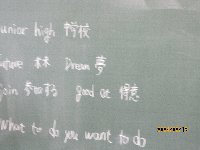 junior high 中学校
future 未来 Dream 夢
join 参加する good at 得意
What to do you want to do